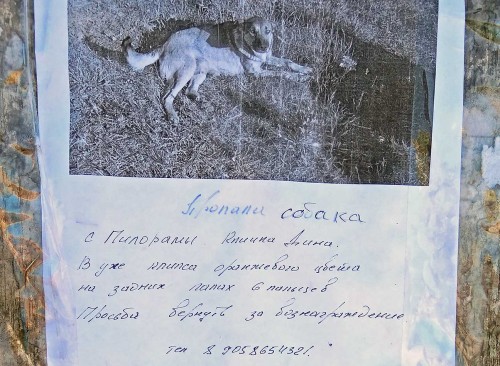 Пропала собака
с Пилорамы Кличка Дина.
В ухе клипса оранжевого цвета
на задних лапах 6 пальцев
Просьба вернуть за вознаграждение
тел 8 9058654321.